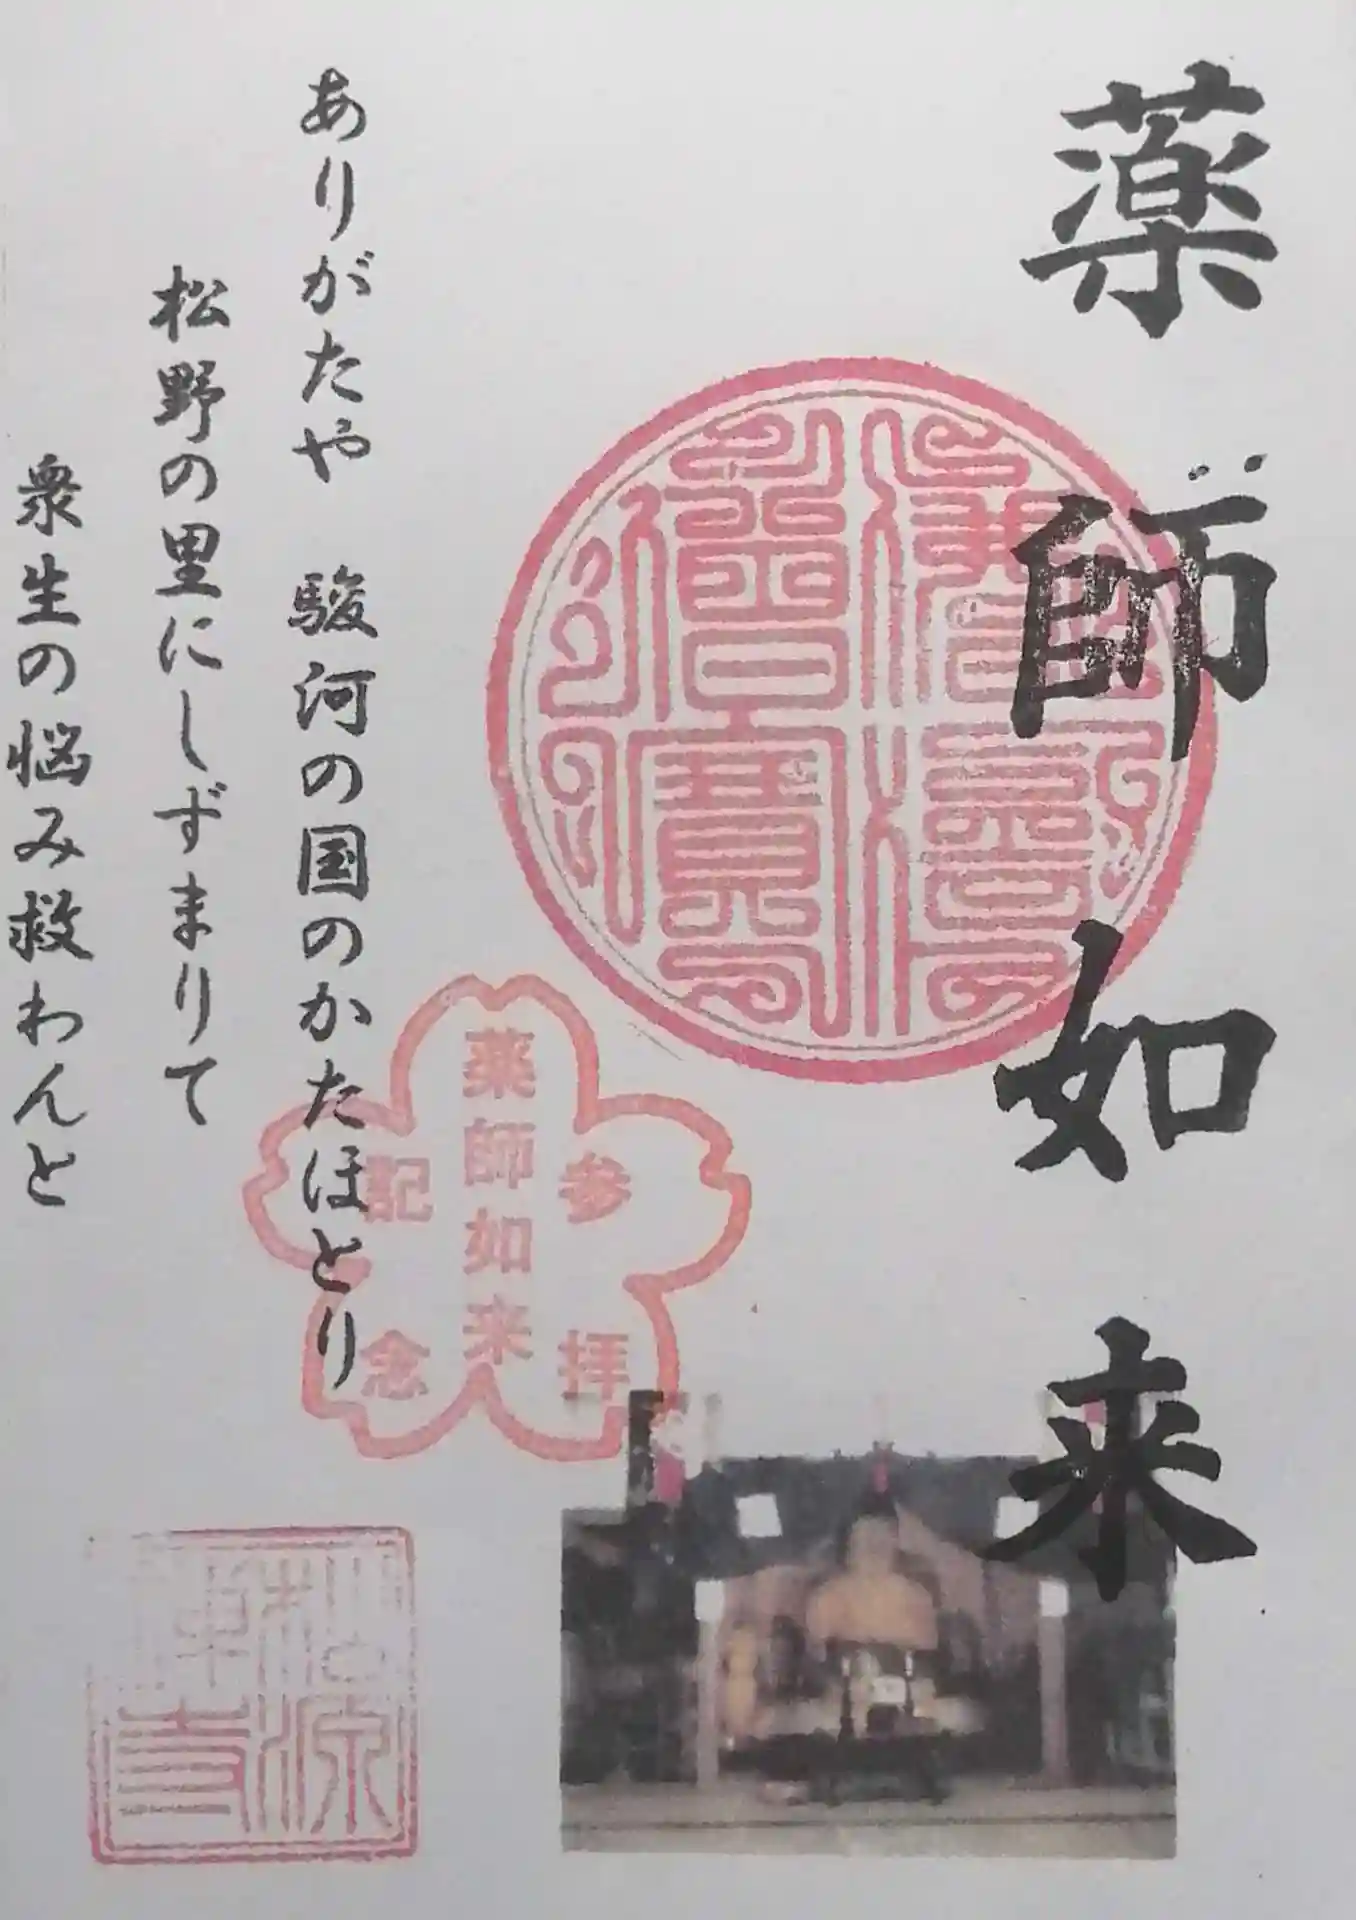 薬師如来
参拝
薬師如来
記念
ありがたや 駿河の国のかたほとり
松野の里にしずまりて
衆生の悩み救わんと